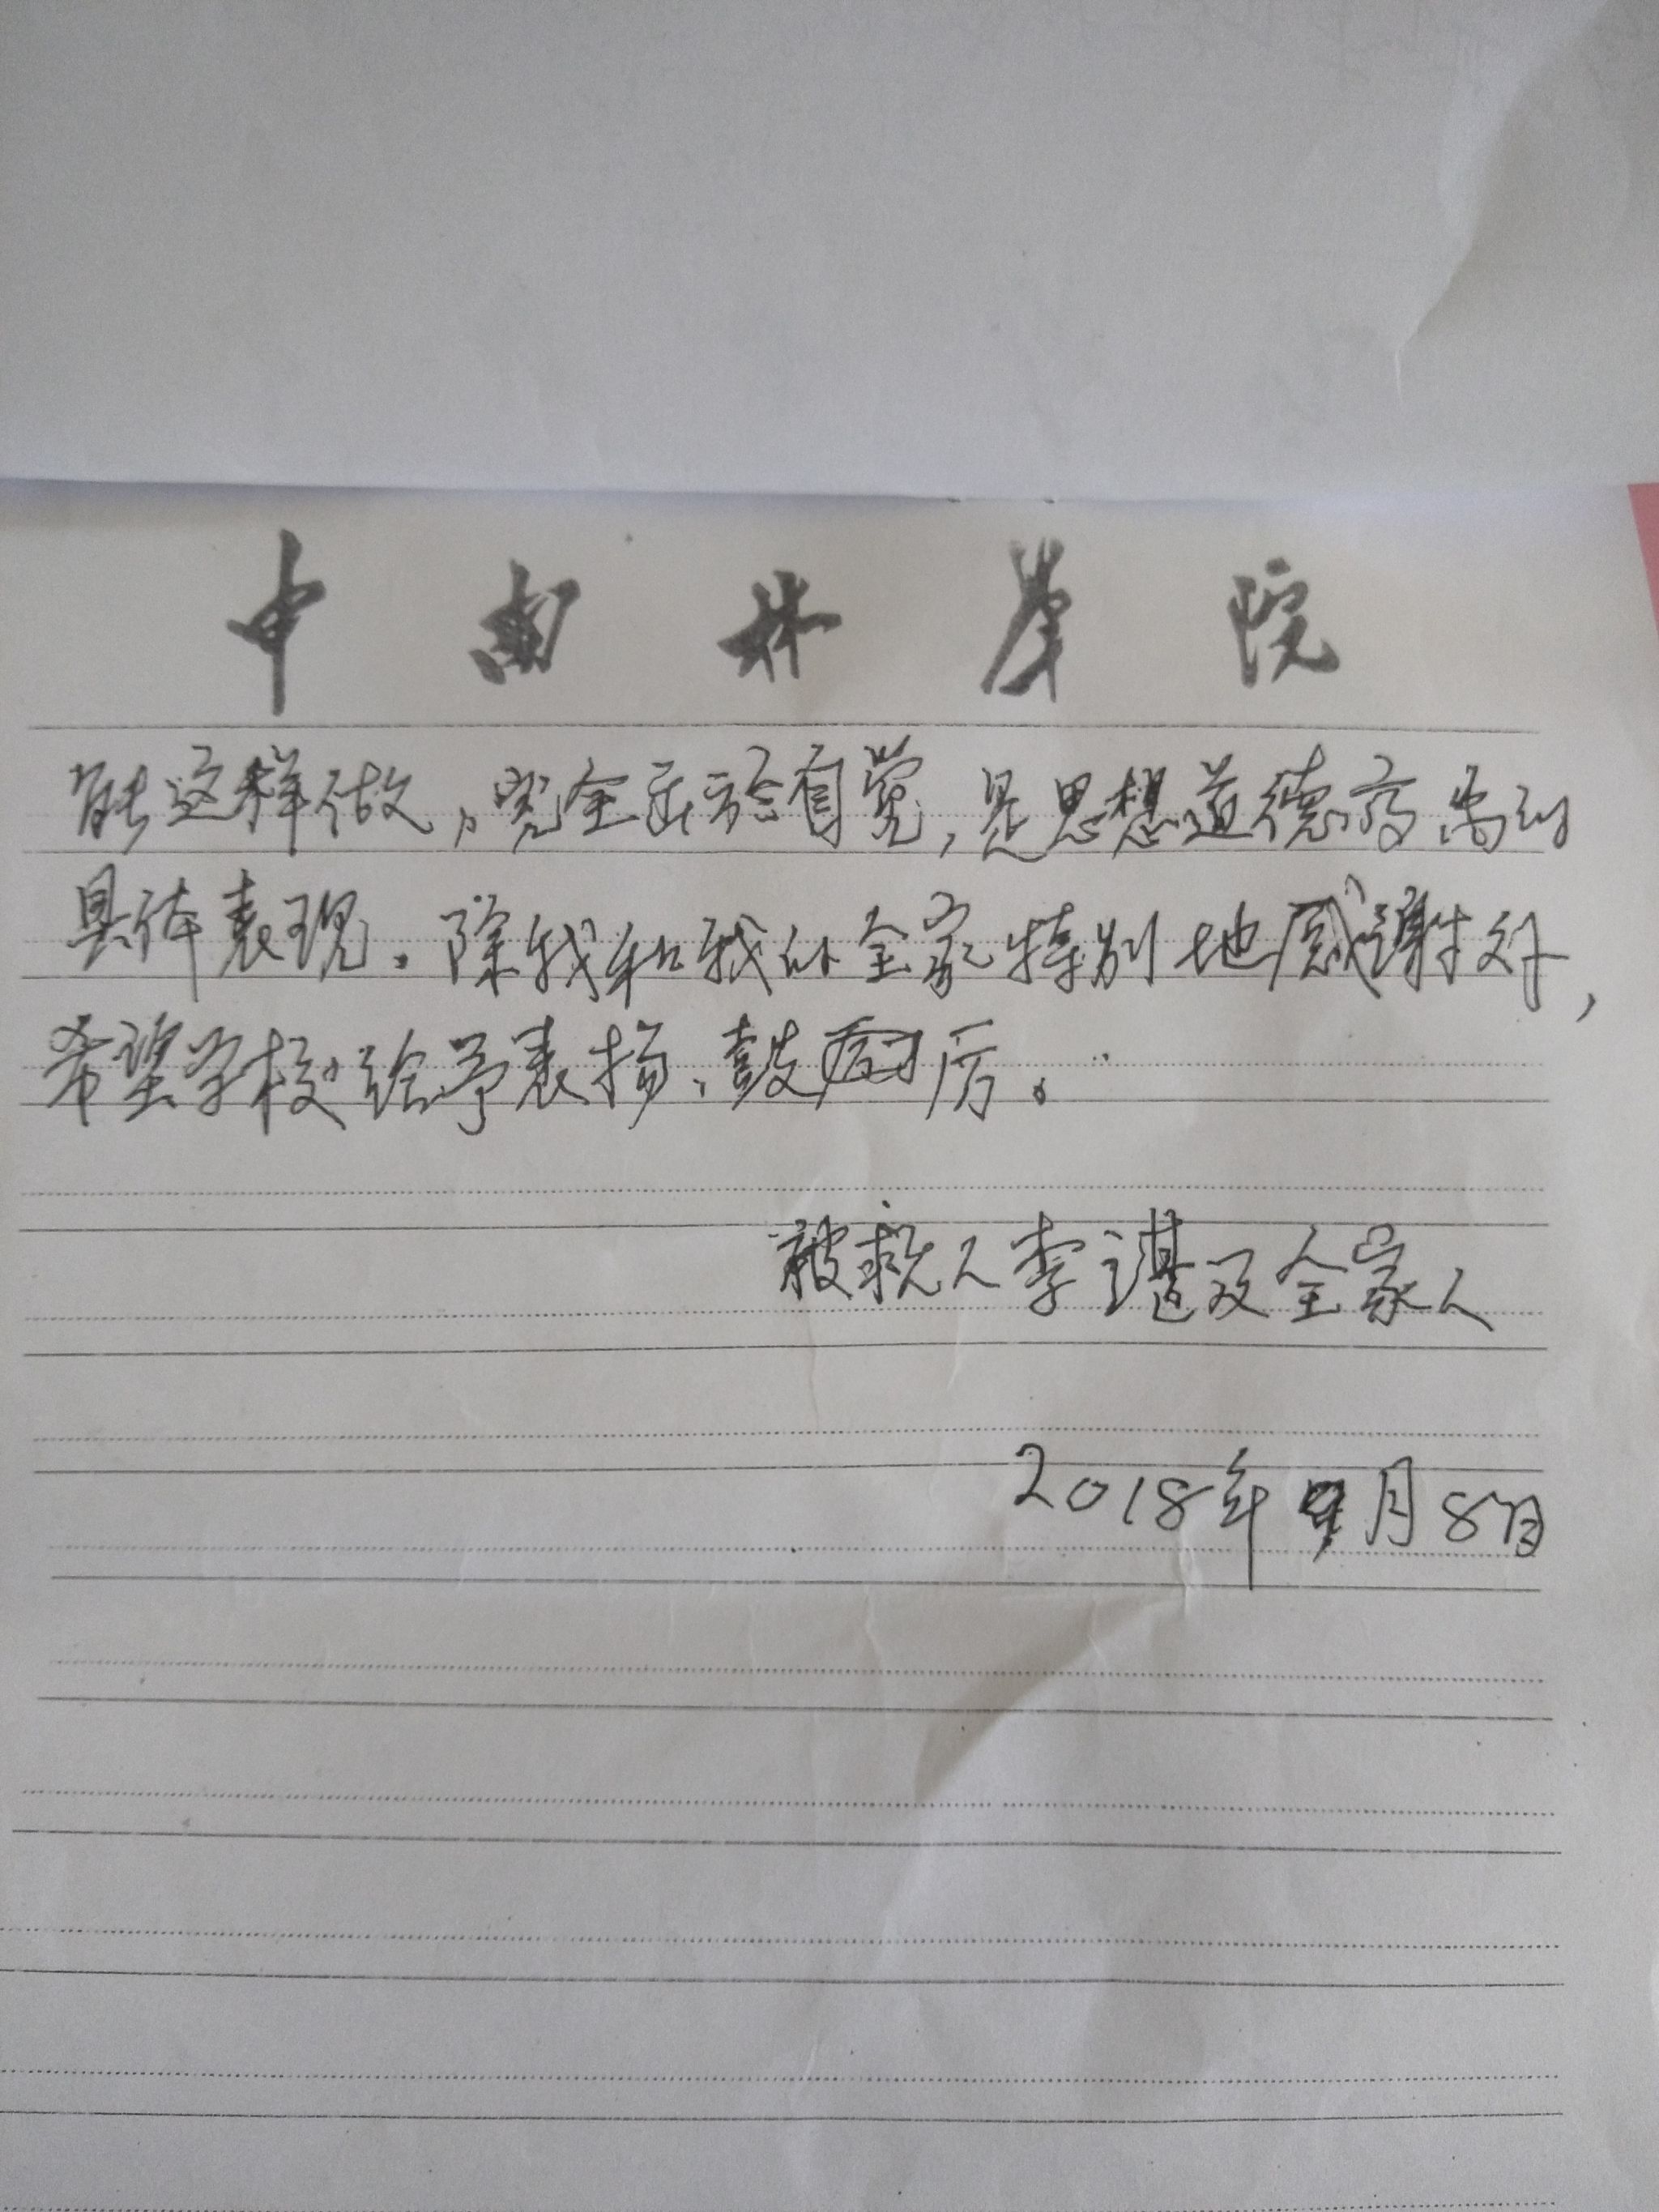 中南林学院
能这样做,完全出于自觉,是思想道德高尚的
具体表现。除我和我的全家特别地感谢外,
希望学校给予表扬、鼓厉。
被救人李谌及全家人
2018年9月8日